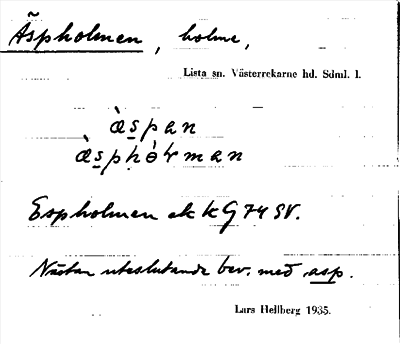 Äspholmen, holme,
Lista sn. Västerrekarne hd. Sdml. l.
àspan
Espholmen ek k G 74 SV.
Nästan uteslutande bev. med asp.
Lars Hellberg 1935.